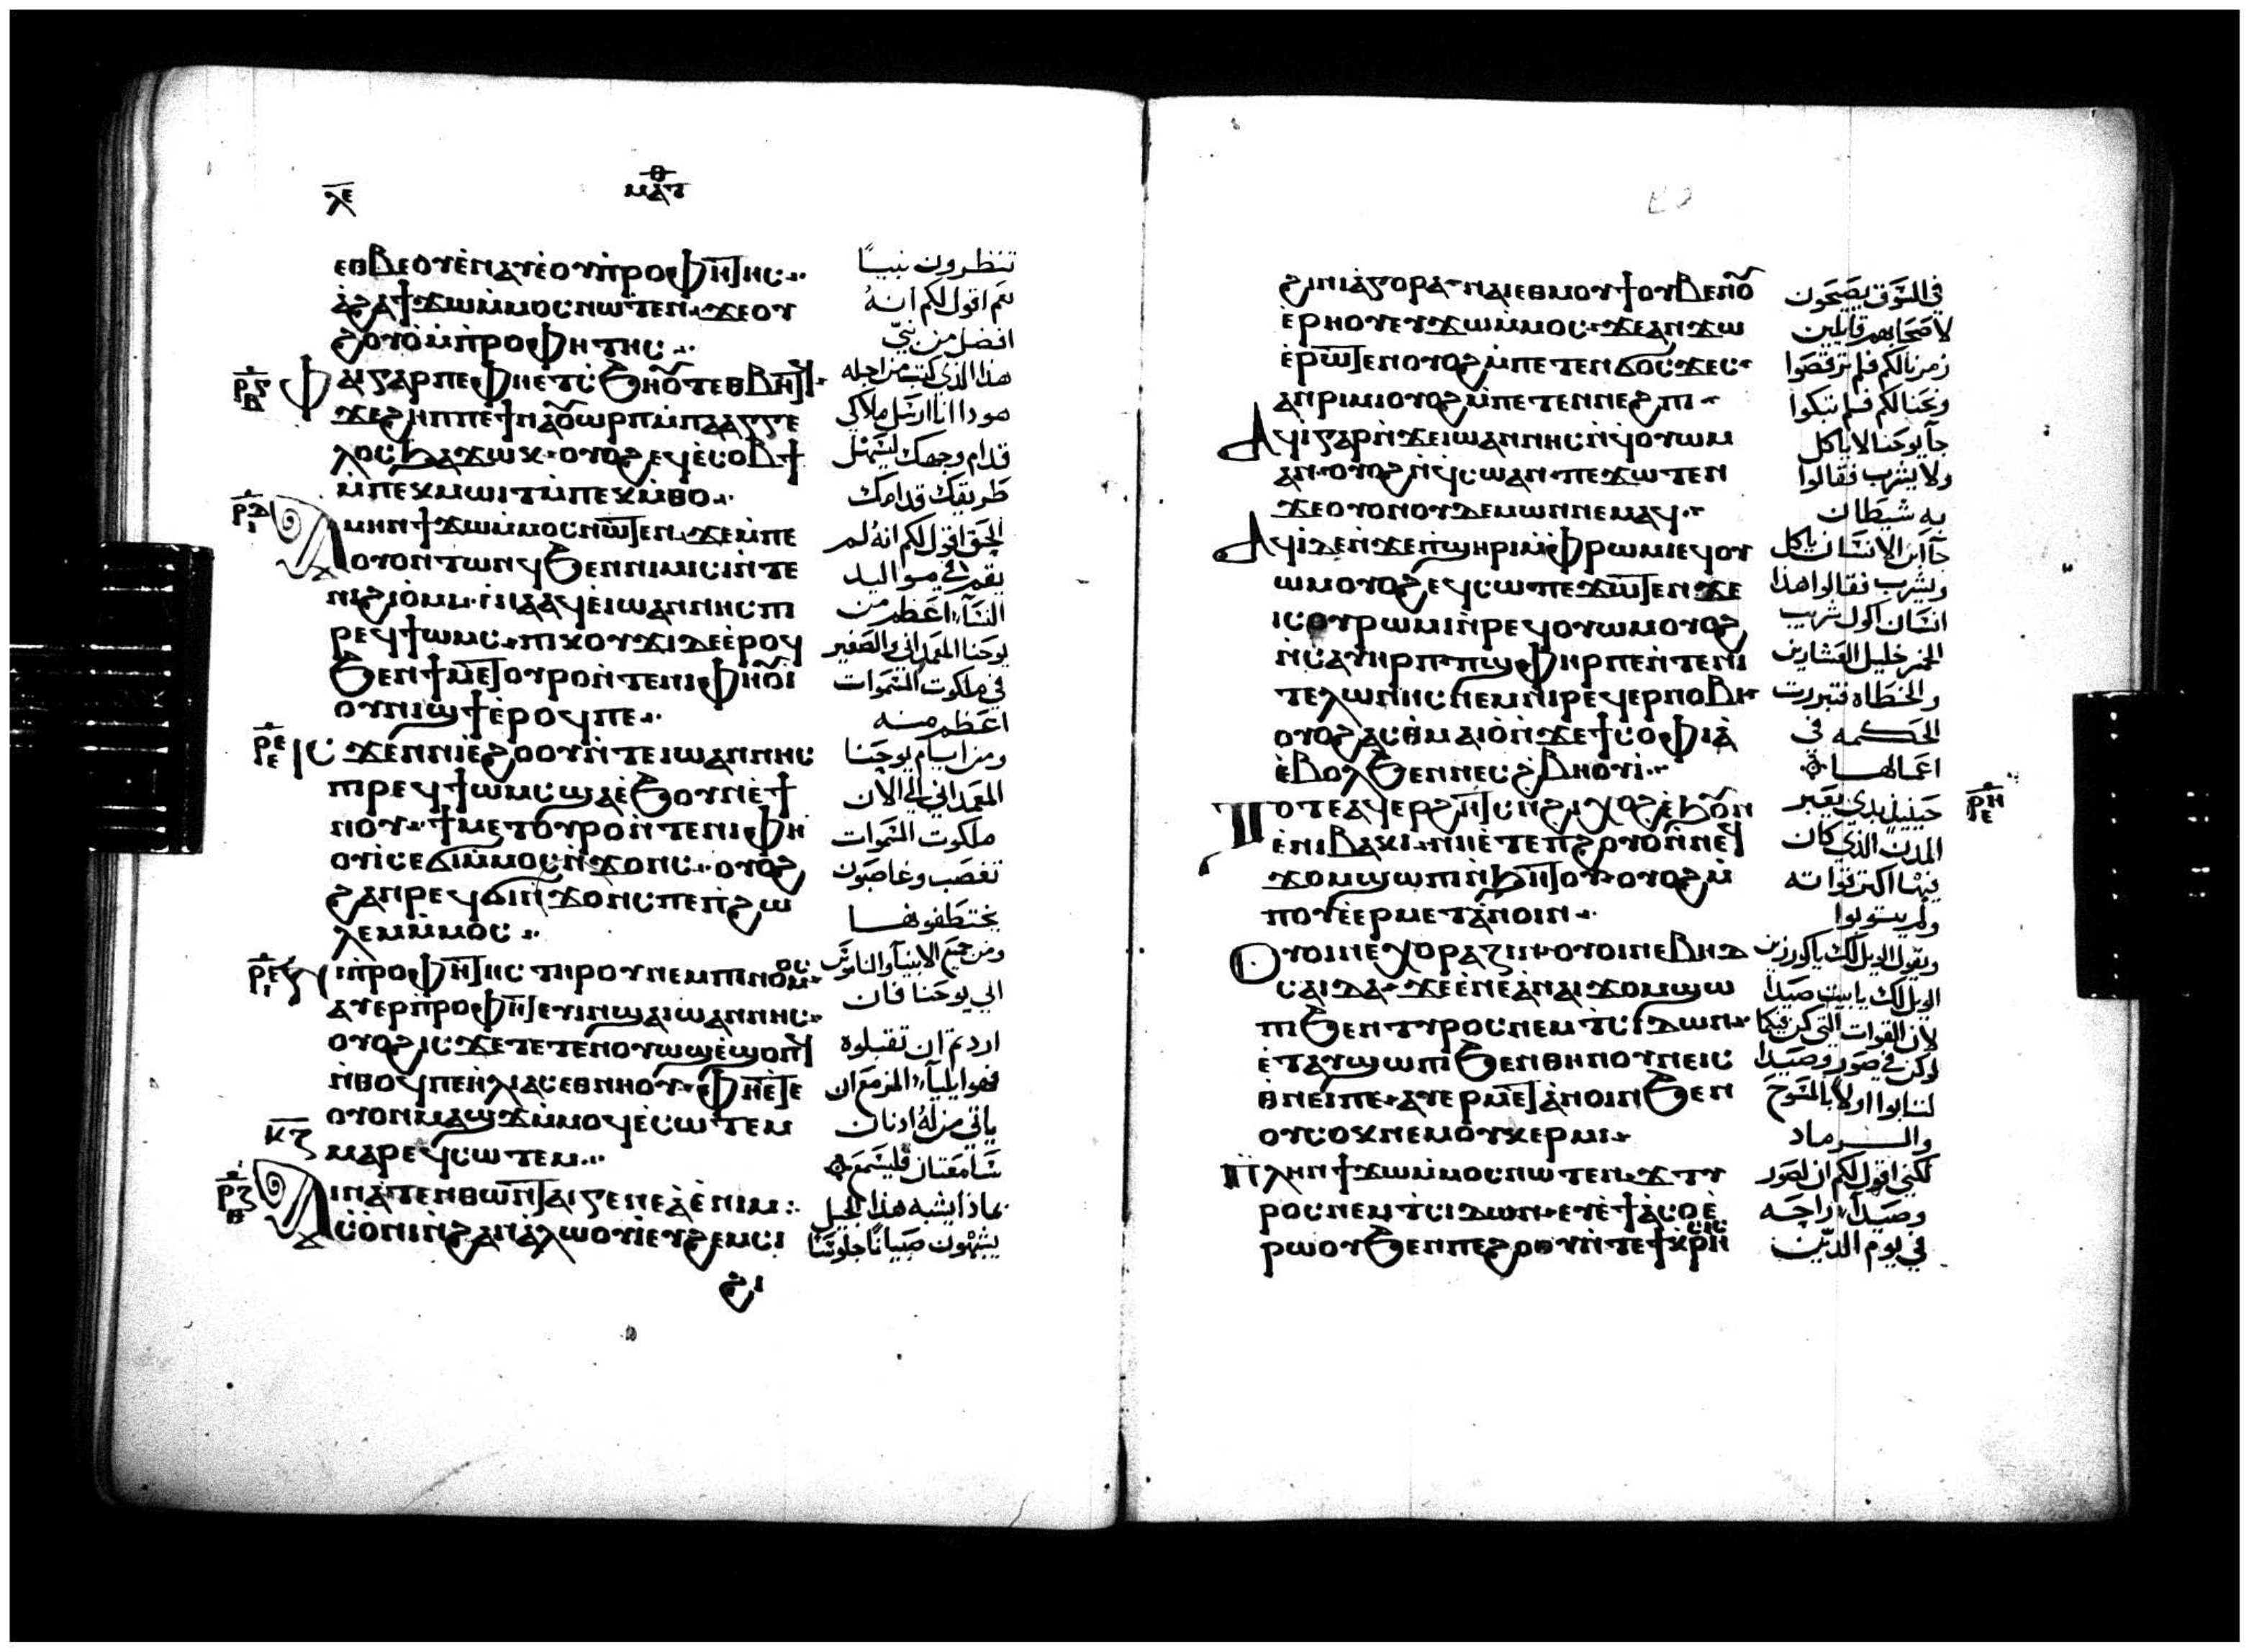 ⲗⲉ
ⲙⲁⲧⲑ
ⲉⲑⲃⲉⲟⲩⲉⲛⲁⲩⲉⲟⲩⲡⲣⲟⲫⲏⲧⲏⲥ
ⲁϩⲁϯϫⲱⲙⲙⲟⲥⲛⲱⲧⲉⲛ ϫⲉⲟⲩ
ϩⲟⲩⲟⲙⲡⲣⲟⲫⲏⲧⲏⲥ
ⲫⲁⲓⲅⲁⲣⲡⲉⲫⲏⲉⲧⲥϧⲏⲟⲩⲧⲉⲑⲃⲏⲧϥ
ϫⲉϩⲏⲡⲡⲉϯⲛⲁⲟⲩⲱⲣⲡⲙⲡⲁⲁⲅⲅⲉ
ⲗⲟⲥϧⲁϫⲱⲕ ⲟⲩⲟϩⲉϥⲉⲥⲟⲃϯ
ⲙⲡⲉⲕⲙⲱⲓⲧⲙⲡⲉⲕⲙⲑⲟ
ⲁⲙⲏⲛϯϫⲱⲙⲙⲟⲥⲛⲱⲧⲉⲛ ϫⲉⲙⲡⲉ
ⲟⲩⲟⲛⲧⲱⲛϥϧⲉⲛⲛⲓⲙⲓⲥⲓⲛⲧⲉ
ⲛⲓϩⲓⲟⲙⲓ ⲛⲛⲁⲁϥⲉⲓⲱⲁⲛⲛⲏⲥⲡⲓ
ⲣⲉϥϯⲱⲙⲥ ⲡⲓⲕⲟⲩϫⲓⲇⲉⲉⲣⲟϥ
ϧⲉⲛϯⲙⲉⲧⲟⲩⲣⲟⲛⲧⲉⲛⲓⲫⲏⲟⲩⲓ
ⲟⲩⲛⲓϣϯⲉⲣⲟϥⲡⲉ
ⲓⲥϫⲉⲛⲛⲓⲉϩⲟⲟⲩⲛⲧⲉⲓⲱⲁⲛⲛⲏⲥ
ⲡⲓⲣⲉϥϯⲱⲙⲥϣⲁⲉϧⲟⲩⲛⲉϯ
ⲛⲟⲩ ϯⲙⲉⲧⲟⲩⲣⲟⲛⲧⲉⲛⲓⲫⲏ
ⲟⲩⲓⲥⲉϭⲓⲙⲙⲟⲥⲛϫⲟⲛⲥ ⲟⲩⲟϩ
ϩⲁⲛⲣⲉϥϭⲓⲛϫⲟⲛⲥⲡⲉⲧϩⲱ
ⲗⲉⲙⲙⲙⲟⲥ
ⲛⲓⲡⲣⲟⲫⲏⲧⲏⲥ ⲧⲏⲣⲟⲩⲛⲉⲙⲡⲓⲛⲟⲙⲟⲥ
ⲁⲩⲉⲣⲡⲣⲟⲫⲏⲧⲉⲩⲓⲛϣⲁⲓⲱⲁⲛⲛⲏⲥ
ⲟⲩⲟϩⲓⲥϫⲉⲧⲉⲧⲉⲛⲟⲩⲱϣⲉϣⲟⲡϥ
ⲛⲑⲟϥⲡⲉⲏⲗⲓⲁⲥⲉⲑⲛⲏⲟⲩ ⲫⲏⲉⲧⲉ
ⲟⲩⲟⲛⲙⲁϣϫⲙⲙⲟϥⲉⲥⲱⲧⲉⲙ
ⲙⲁⲣⲉϥⲥⲱⲧⲉⲙ
ⲁⲓⲛⲁⲧⲉⲛⲑⲱⲛⲧⲁⲓⲅⲉⲛⲉⲁⲉⲛⲓⲙ
ⲥⲟⲛⲓⲛϩⲁⲛⲁⲗⲱⲟⲩⲓⲉⲩϩⲉⲙⲥⲓ
ϩⲓ
تنظرون نبيًا
نعم اقول لكم انه
افضل من نبي
هذا الذي كتب من اجله
هوذا انا ارسل ملاكي
قدام وجهك ليسهل
طريقك قدامك
الحق اقول لكم انه لم
يقم في مواليد
النسآء اعظم من
يوحنا المعمداني والصغير
في ملكوت السموات
اعظم منه
ومن ايام يوحنا
المعمداني الي الان
ملكوت السموات
تغصب وغاصبون
يختطفونها
ومن جميع الانبيآ والناموس
الي يوحنا فان
اردتم ان تقبلوه
فهو ايليآء المزمع ان
ياتي من له اذنان
سامعتان فليسمع
بماذا يشبه هذا الجيل
يشبهون صبيانًا جلوسًا
ϩⲓⲛⲓⲁⲅⲟⲣⲁ ⲛⲁⲓⲉⲑⲙⲟⲩϯⲟⲩⲃⲉⲛⲟⲩ
ⲉⲣⲏⲟⲩⲉⲩϫⲱⲙⲙⲟⲥ ϫⲉⲁⲛϫⲱ
ⲉⲣⲱⲧⲉⲛⲟⲩⲟϩⲙⲡⲉⲧⲉⲛϭⲟⲥϫⲉⲥ
ⲁⲛⲣⲓⲙⲓⲟⲩⲟϩⲙⲡⲉⲧⲉⲛⲛⲉϩⲡⲓ
ⲁϥⲓⲅⲁⲣⲛϫⲉⲓⲱⲁⲛⲛⲏⲥⲛϥⲟⲩⲱⲙ
ⲁⲛ ⲟⲩⲟϩⲛϥⲥⲱⲁⲛ ⲡⲉϫⲱⲧⲉⲛ
ϫⲉⲟⲩⲟⲛⲟⲩⲇⲉⲙⲱⲛⲛⲉⲙⲁϥ
ⲁϥⲓⲇⲉⲛϫⲉⲡϣⲏⲣⲓⲙⲫⲣⲱⲙⲓⲉϥⲟⲩ
ⲱⲙⲟⲩⲟϩⲉϥⲥⲱⲡⲉϫⲱⲧⲉⲛ ϫⲉ
ⲓⲥⲟⲩⲣⲱⲙⲓⲛⲣⲉϥⲟⲩⲱⲙⲟⲩⲟϩ
ⲛⲥⲁⲩⲏⲣⲡ ⲡϣⲫⲏⲣⲡⲉⲛⲧⲉⲛⲓ
ⲧⲉⲗⲱⲛⲏⲥⲛⲉⲙⲛⲓⲣⲉϥⲉⲣⲛⲟⲃⲓ
ⲟⲩⲟϩⲁⲥⲑⲙⲁⲓⲟⲛϫⲉϯⲥⲟⲫⲓⲁ
ⲉⲃⲟⲗϧⲉⲛⲛⲉⲥϩⲃⲏⲟⲩⲓ
ⲧⲟⲧⲉⲁϥⲉⲣϩⲏⲧⲥⲛϩⲓⲭⲟϩⲉϧⲟⲩⲛ
ⲉⲛⲓⲃⲁⲕⲓ ⲛⲏⲉⲧⲉⲡϩⲟⲩⲟⲛⲛⲉϥ
ϫⲟⲙϣⲱⲡⲓⲛϧⲏⲧⲟⲩ ⲟⲩⲟϩⲙ
ⲡⲟⲩⲉⲣⲙⲉⲧⲁⲛⲟⲓⲛ
ⲟⲩⲟⲓⲛⲉⲭⲟⲣⲁⲍⲓⲛ ⲟⲩⲟⲓⲛⲉⲃⲏⲇ
ⲥⲁⲓⲇⲁ ϫⲉⲉⲛⲉⲁⲛⲁⲓϫⲟⲙϣⲱ
ⲡⲓϧⲉⲛⲧⲩⲣⲟⲥⲛⲉⲙⲧⲥⲓⲇⲱⲛ
ⲉⲧⲁⲩϣⲱⲡⲓϧⲉⲛⲑⲏⲛⲟⲩⲛⲉⲓⲥ
ⲑⲛⲉⲓⲡⲉ ⲁⲩⲉⲣⲙⲉⲧⲁⲛⲟⲓⲛϧⲉⲛ
ⲟⲩⲥⲟⲕⲛⲉⲙⲟⲩⲕⲉⲣⲙⲓ
ⲡⲗⲏⲛϯϫⲱⲙⲙⲟⲥⲛⲱⲧⲉⲛ ϫⲧⲩ
ⲣⲟⲥⲛⲉⲙⲧⲥⲓⲇⲱⲛ ⲉⲩⲉϯⲁⲥⲟⲉ
ⲣⲱⲟⲩϧⲉⲛⲡⲉϩⲟⲟⲩⲛⲧⲉϯⲕⲣⲓⲥⲓⲥ
في السوق يصيحون
لاصحابهم قايلين
زمرنا لكم فلم ترقصوا
ونحنا لكم فلم تبكوا
جآ يوحنا لا ياكل
ولا يشرب فقالوا
به شيطان
جآ ابن الانسان ياكل
ويشرب فقالوا هذا
انسان اكول شريب
الخمر خليل العشارين
والخطاه فتبررت
الحكمه في
اعمالها
حينيذ بدي يعير
المدن الذي كان
فيها اكثر قواته
ولم يتوبوا
ويقول الويل لك ياكورزين
الويل لك يا بيت صيدا
لان القوات التي كن فيكما
لو كن في صور وصيدا
لتابوا اولًا بالمسوح
والرماد
لكني اقول لكم ان لصور
وصيدآء راحه
في يوم الدين